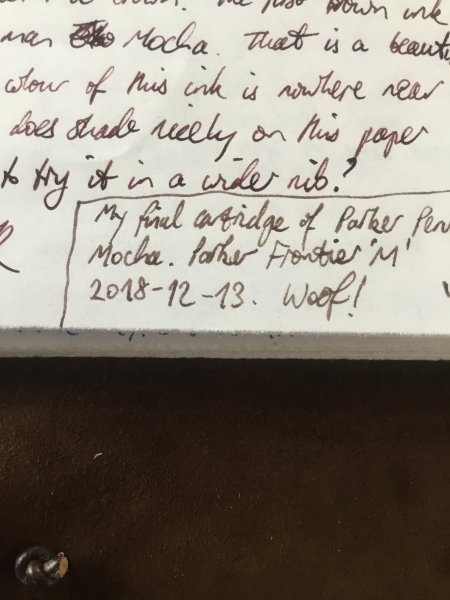 brown ink
man Mocha. That is a
colour of this ink is nowhere near
does shade nicely on this paper
to try it in a wider nib?
My final cartridge of Parker Pen
Mocha. Parker Frontier 'M'
2018-12-13. Woof!